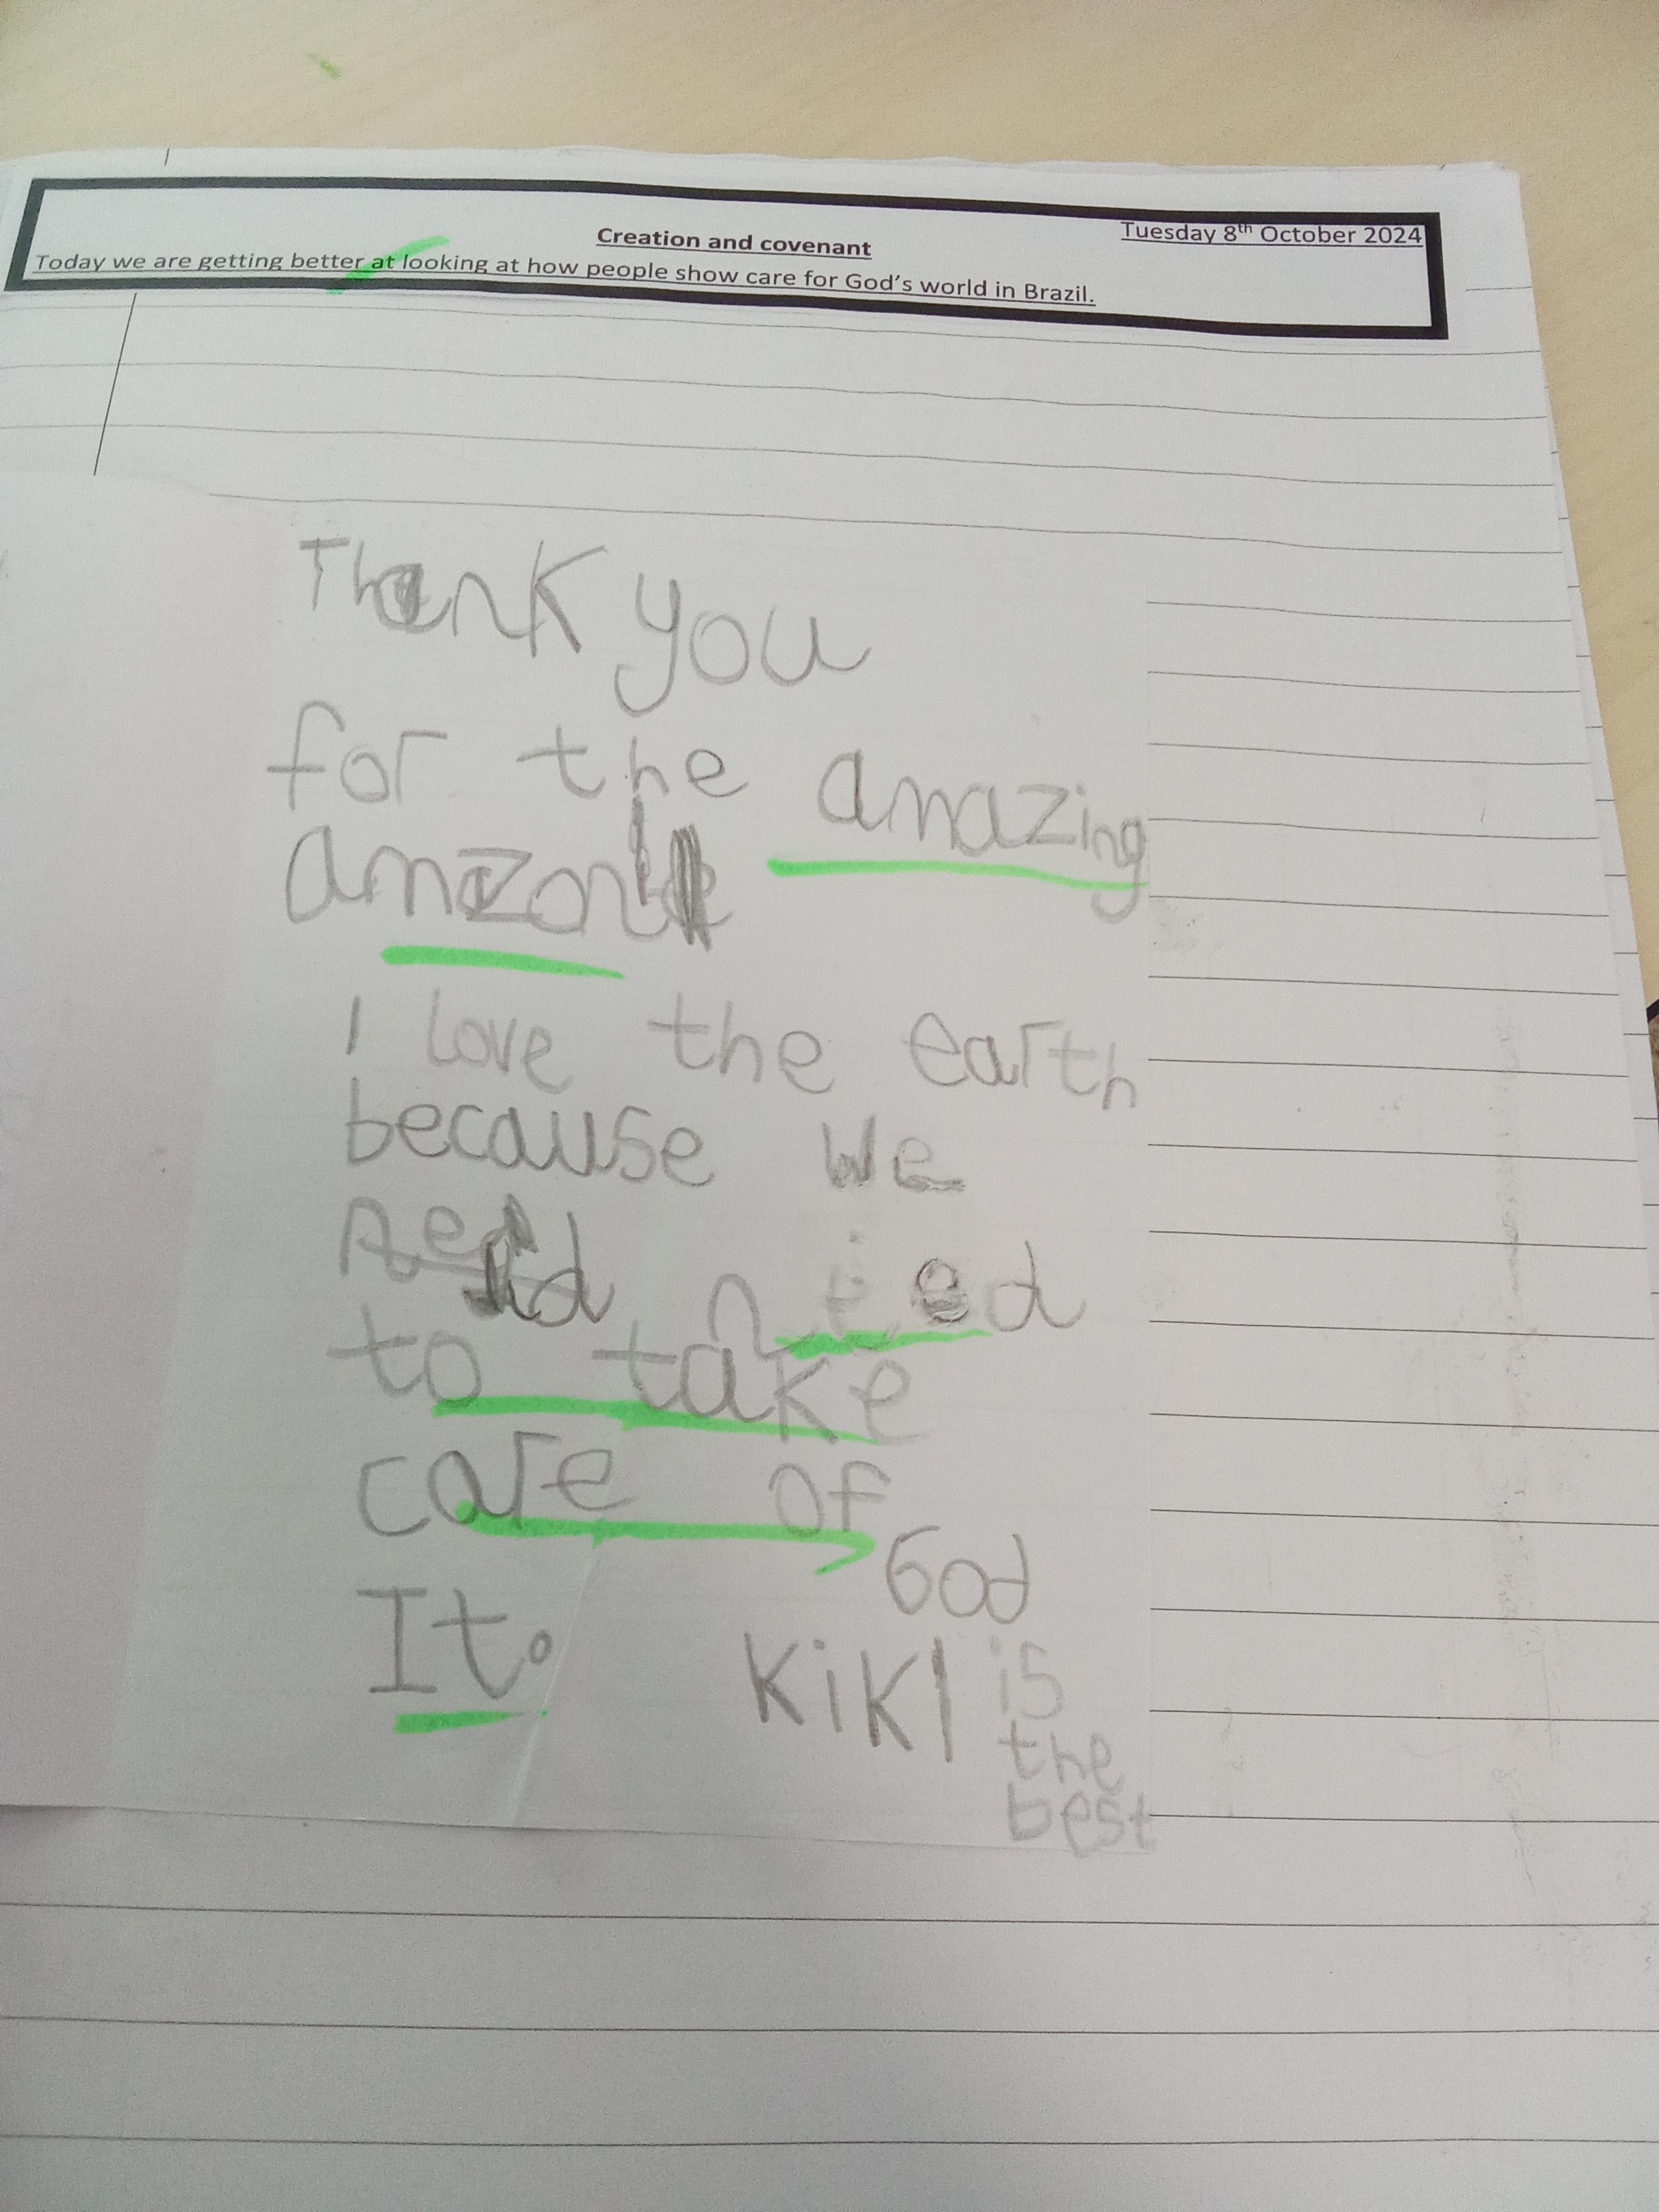 Creation and covenant
Tuesday 8th October 2024
Today we are getting better at looking at how people show care for God's world in Brazil.
Thank you
for the amazing
amazon
I love the earth
because we
to take
care of
It.
KiKI
God
is
the
best